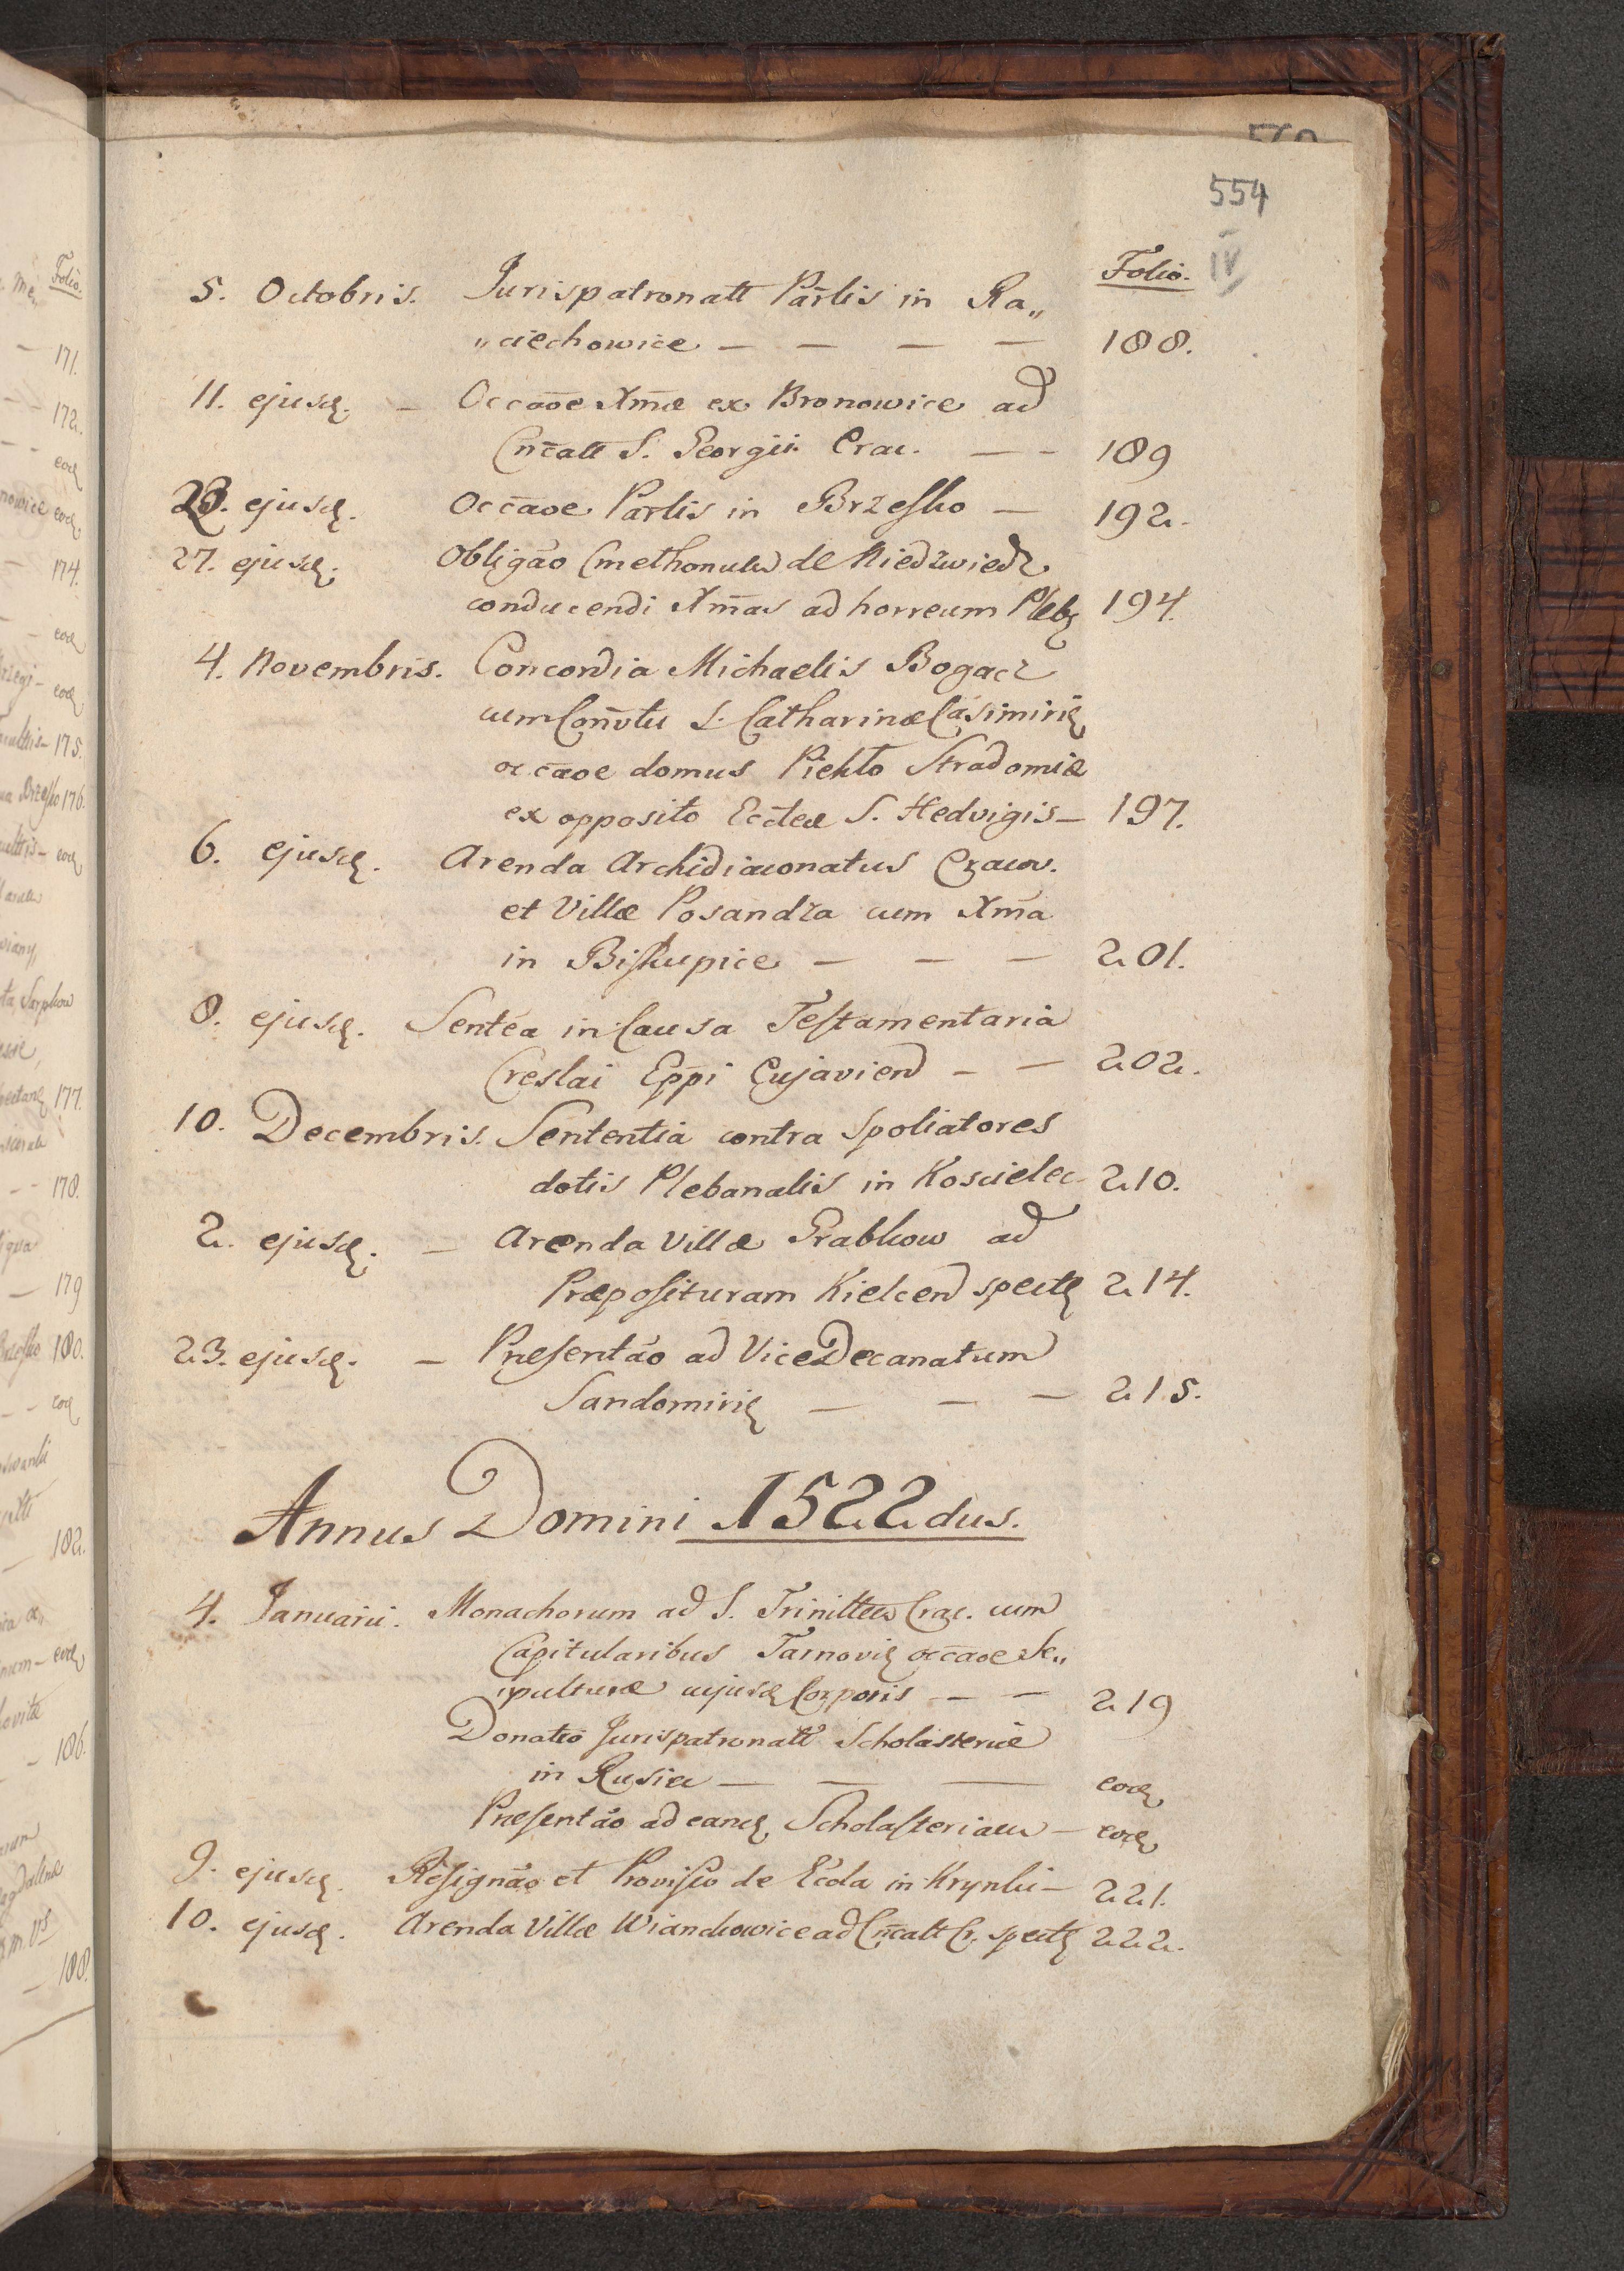 554
IV
Folio.
5. Octobris. Jurispatronatt Partis in Ra„
„ciechowice — — — — 188.
11. ejusd. — Occãoe Xmæ ex Bronowice ad
Cñcatt S. Georgii Crac. — — 189
23. ejusd. Occãoe Partis in Brzesko — 192.
27. ejusd. Obligão Cmethonum de Niedzwiedz
conducendi Xmas ad horreum Pleb. 194.
4. Novembris. Concordia Michaelis Bogacz
cum Conṽtu S. Catharinæ Casimiriæ
occãoe domus Piekło Stradomiæ
ex opposito Ecclæ S. Hedvigis — 197.
6. ejusd. Arenda Archidiaconatus Cracov.
et Villæ Posandza cum Xma
in Biskupice — — — 201.
8. ejusd. Sentea in Causa Testamentaria
Creslai Eppi Cujavien — — 202.
10. Decembris. Sententia contra Spoliatores
dotis Plebanalis in Koscielec 210.
2. ejusd. — Arenda Villæ Grabkow ad
Præposituram Kielcen spect. 214.
23. ejusd. — Præsentão ad ViceDecanatum
Sandomiriæ — — — 215.
Annus Domini 1522dus.
4. Januarii. Monachorum ad S. Trinittem Crac. cum
Capitularibus Tarnoviæ occãoe Se„
„pulturæ cujusd. Corporis — — 219
Donatio Jurispatronatt Scholasteriæ
in Rusia — — — eod.
Præsentão ad eand. Scholasteriam — eod.
9. ejusd. Resignão et Provisio de Ecclã in Krynki — 221.
10. ejusd. Arenda Villæ Wianckowice ad Cñcatt Cr. spect. 222.